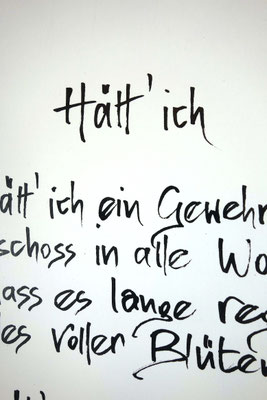 Hätt' ich
ätt' ich ein Gewehr
schoss in alle Wo
ass es lange reg
es voller Blüten